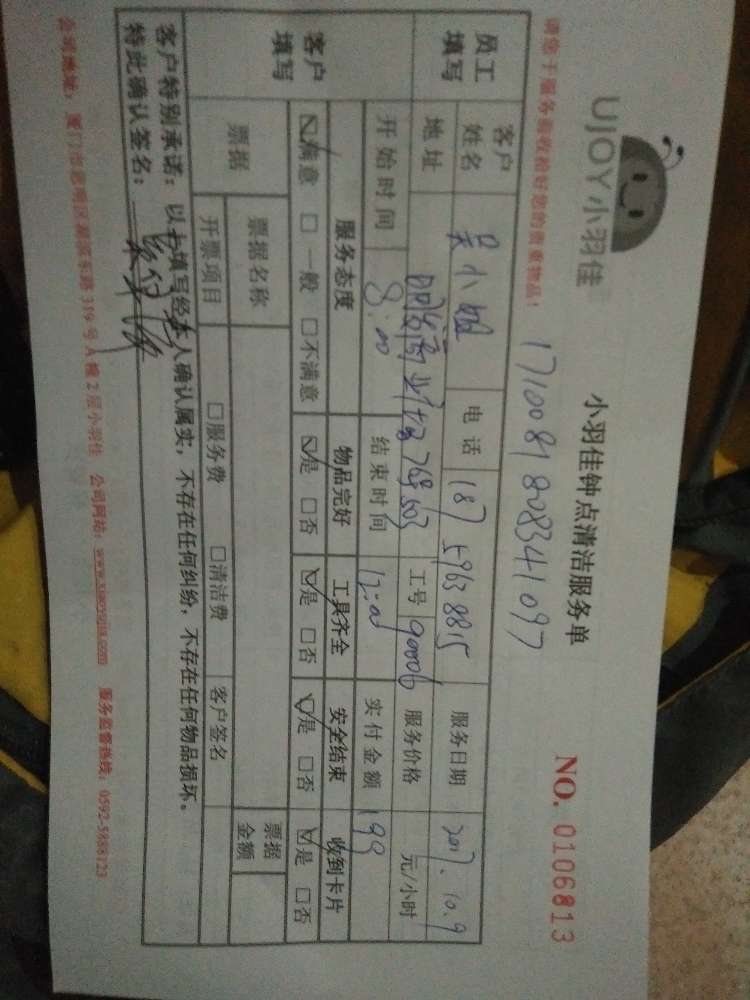 UJOY小羽佳
小羽佳钟点清洁服务单
NO. 0106813
请您于服务前收拾好您的贵重物品!
1710081808341097
员工填写
客户姓名 吴小姐 电话 187 5963 8815 服务日期 2017.10.9
地址 工号 90006 服务价格 元/小时
开始时间 8:00 结束时间 12:00 实付金额 199
客户填写
服务态度 物品完好 工具齐全 安全结束 收到卡片
☑满意 □一般 □不满意 ☑是 □否 ☑是 □否 ☑是 □否 ☑是 □否
票据 票据名称 票据金额
开票项目 □服务费 □清洁费 客户签名
客户特别承诺:以上填写经本人确认属实,不存在任何纠纷,不存在任何物品损坏。
特此确认签名:
公司地址:厦门市思明区湖滨东路319号A幢2层小羽佳 公司网站:www.xiaoyujia.com 服务监督热线:0592-5888123